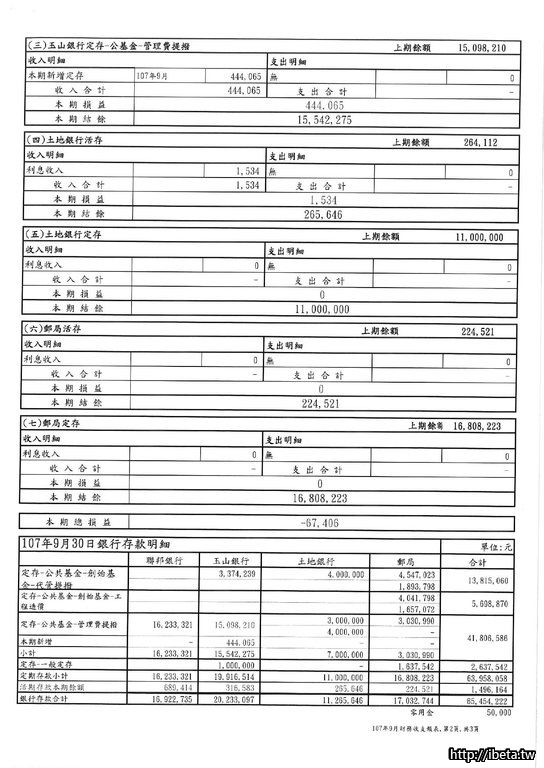 (三)玉山銀行定存-公基金-管理費提撥 上期餘額 15,098,210
收入明細 支出明細
本期新增定存 107年9月 444,065 無 0
收入合計 444,065 支出合計 -
本期損益 444,065
本期結餘 15,542,275
(四)土地銀行活存 上期餘額 264,112
收入明細 支出明細
利息收入 1,534 無 0
收入合計 1,534 支出合計 -
本期損益 1,534
本期結餘 265,646
(五)土地銀行定存 上期餘額 11,000,000
收入明細 支出明細
利息收入 0 無 0
收入合計 - 支出合計 -
本期損益 0
本期結餘 11,000,000
(六)郵局活存 上期餘額 224,521
收入明細 支出明細
利息收入 0 無 0
收入合計 - 支出合計 -
本期損益 0
本期結餘 224,521
(七)郵局定存 上期餘 16,808,223
收入明細 支出明細
利息收入 0 無 0
收入合計 - 支出合計 -
本期損益 0
本期結餘 16,808,223
本期總損益 -67,406
107年9月30日銀行存款明細 單位:元
聯邦銀行 玉山銀行 土地銀行 郵局 合計
定存-公共基金-創始基金-代管提撥 3,374,239 4,000,000 4,547,023 13,815,060
1,893,798
定存-公共基金-創始基金-工程造價 4,041,798 5,698,870
1,657,072
定存-公共基金-管理費提撥 16,233,321 15,098,210 3,000,000 3,030,990 41,806,586
4,000,000 -
本期新增 - 444,065 - -
小計 16,233,321 15,542,275 7,000,000 3,030,990
定存-一般定存 1,000,000 - 1,637,542 2,637,542
定期存款小計 16,233,321 19,916,514 11,000,000 16,808,223 63,958,058
活期存款本期餘額 689,414 316,583 265,646 224,521 1,496,164
銀行存款合計 16,922,735 20,233,097 11,265,646 17,032,744 65,454,222
零用金 50,000
107年9月財務收支報表,第2頁,共3頁
http://ibeta.tw